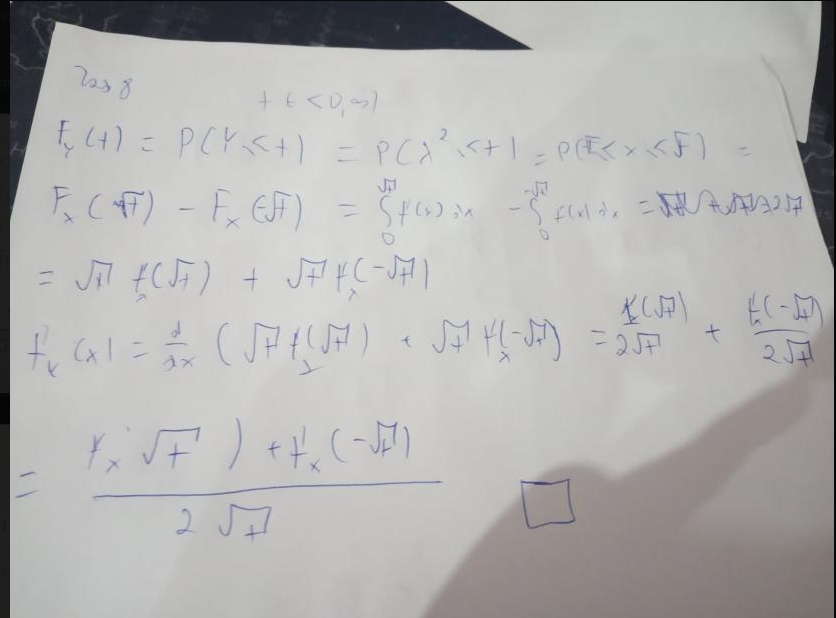 t ∈ <0,∞)
F_Y(t) = P(Y ≤ t) = P(X² ≤ t) = P(√t ≤ x ≤ √t) =
F_x(√t) - F_x(-√t) = ∫₀^√t f(x)dx - ∫₀^-√t f(x)dx =
= √t f_x(√t) + √t f_x(-√t)
f_Y(x) = d/dx (√t f_x(√t) + √t f_x(-√t)) = f_x(√t)/2√t + f_x(-√t)/2√t
= (f_x √t) + f_x(-√t))/2√t □